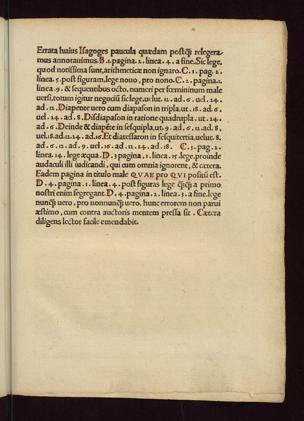 Errata huius Isagoges paucula quædam postq̃ relegera-
mus annotauimus. B. 2. pagina. 2. linea. 4. a fine. Sic lege,
quod notissima sunt, arithmeticæ non ignaro. C. 1. pag. 2.
linea. 5. post figuram, lege nouo, pro nono. C. 2. pagina. 2.
linea. 9. & sequentibus octo, numeri per fœmininum male
uersi, totum igitur negocii sic lege, ut ut. 12. ad .6. uel .24.
ad .12. Diapente uero cum diapason in tripla, ut .18. ad .6.
uel .24. ad .8. Disdiapason in ratione quadrupla . ut .24.
ad .6. Deinde & diapẽte in sesquipla, ut .9. ad .6. 12. ad .8,
uel .18. ad .12. 24. ad. Et diatessaron in sesquitertia, ut ut. 8.
ad .6. 12. ad .9. uel .16. ad .12. 24. ad .18. C. 3. pag. 2.
linea. 14. lege æqua. D. 3 pagina. 1. linea. 15. lege. proinde
audaculi illi iudicandi, qui cum omnia ignorent, & cætera.
Eadem pagina in titulo male QVAE pro QVI positũ est.
D. 4. pagina. 1. linea. 4. post figuras lege q̃q̃ a primo
nostri enim segregant. D. 4. pagina. 2. linea. 3. a fine. lege
nunq̃ uero, pro nonnunq̃ uero, hunc errorem non parui
æstimo, cum contra auctoris mentem pressa sit . Cætera
diligens lector facile emendabit.